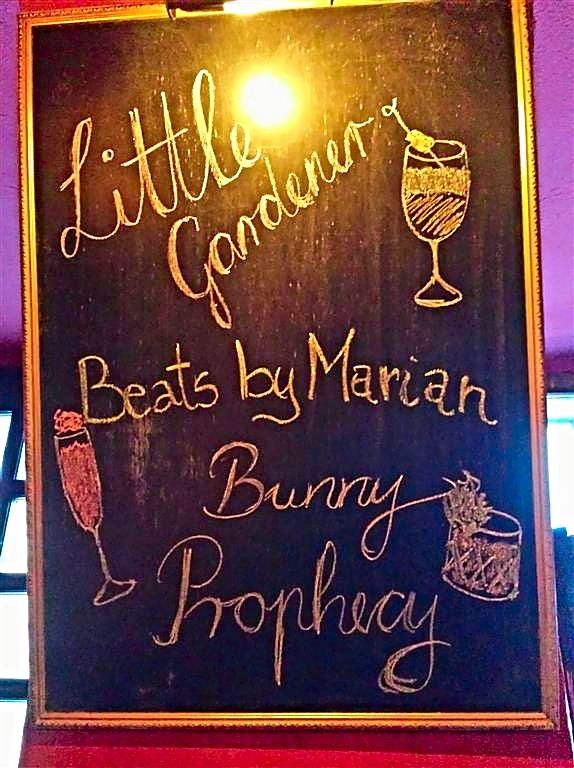 Little
Gardener
Beats by Marian
Bunny
Prophecy